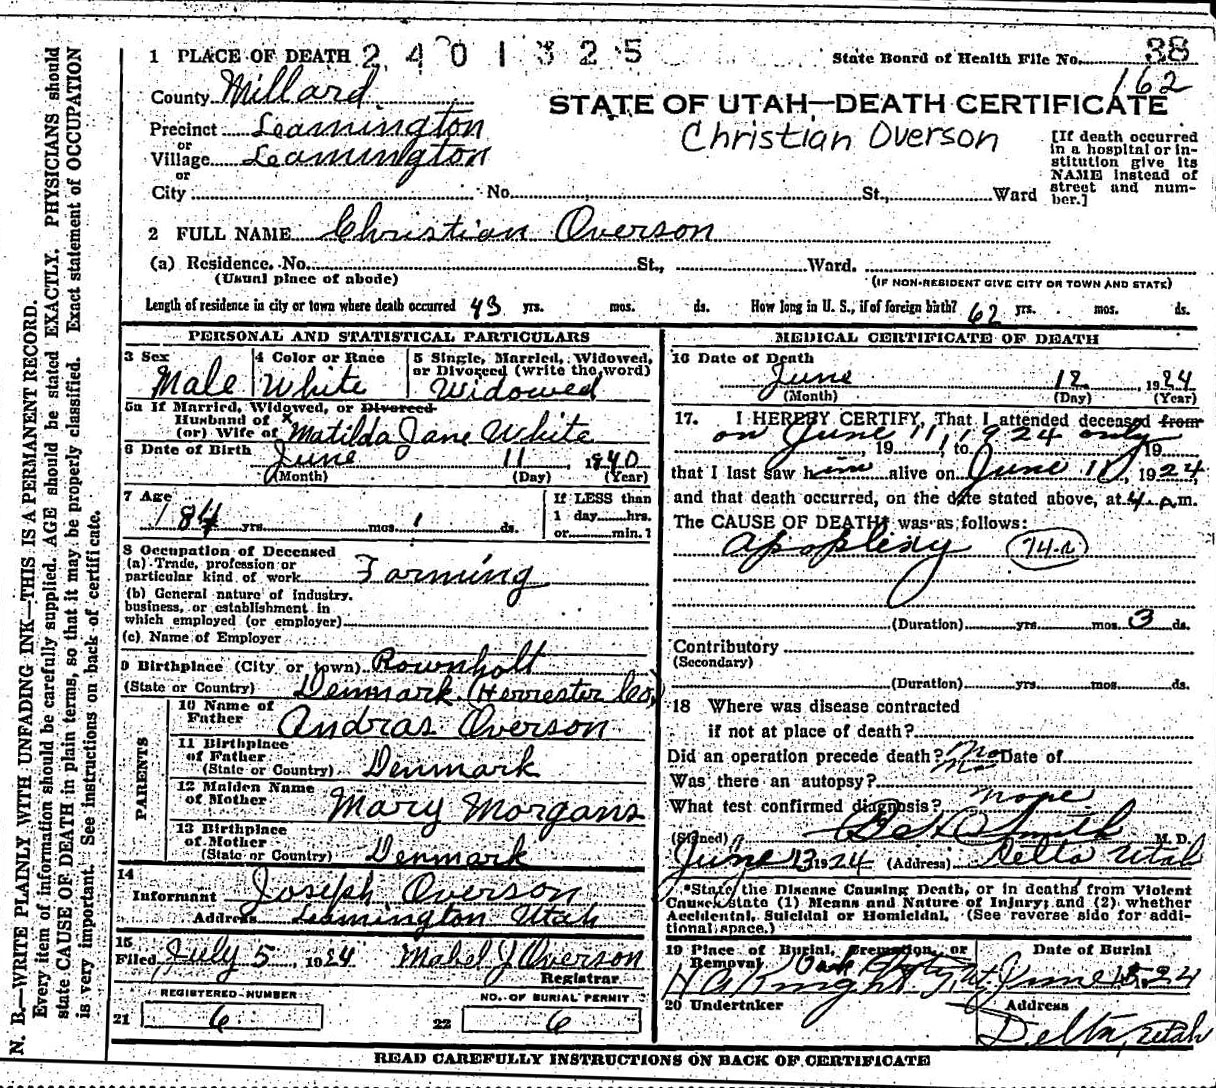 1 PLACE OF DEATH 2 4 0 1 3 2 5
State Board of Health File No. 38
162
County Millard
STATE OF UTAH—DEATH CERTIFICATE
Precinct Leamington
Christian Overson
or
Village Leamington
or
City No. St., Ward
[If death occurred
in a hospital or in-
stitution give its
NAME instead of
street and num-
ber.]
2 FULL NAME Christian Overson
(a) Residence. No. St., Ward.
(Usual place of abode)
(IF NON-RESIDENT GIVE CITY OR TOWN AND STATE)
Length of residence in city or town where death occurred 43 yrs. mos. ds. How long in U. S., if of foreign birth? 62 yrs. mos. ds.
PERSONAL AND STATISTICAL PARTICULARS
3 Sex
Male
4 Color or Race
White
5 Single, Married, Widowed,
or Divorced (write the word)
Widowed
5a If Married, Widowed, or Divorced
Husband of
(or) Wife of Matilda Jane White
6 Date of Birth June 11 1840
(Month) (Day) (Year)
7 Age
84 yrs. mos. 1 ds.
If LESS than
1 day hrs.
or min.?
8 Occupation of Deceased
(a) Trade, profession or
particular kind of work Farming
(b) General nature of industry.
business, or establishment in
which employed (or employer)
(c) Name of Employer
9 Birthplace (City or town) Rownholt
(State or Country) Denmark (Herrester Co)
PARENTS
10 Name of
Father Andras Overson
11 Birthplace
of Father
(State or Country) Denmark
12 Maiden Name
of Mother Mary Morgans
13 Birthplace
of Mother
(State or Country) Denmark
14
Informant Joseph Overson
Address Leamington Utah
15
Filed July 5 1924 Mabel J Overson
Registrar
REGISTERED NUMBER
21 6
NO. OF BURIAL PERMIT
22 6
MEDICAL CERTIFICATE OF DEATH
16 Date of Death
June 12, 1924
(Month) (Day) (Year)
17. I HEREBY CERTIFY, That I attended deceased from
on June 11, 1924 only
, 19 , to 19
that I last saw him alive on June 11, 1924,
and that death occurred, on the date stated above, at 4 a.m.
The CAUSE OF DEATH was as follows:
apoplexy 74a
(Duration) yrs. mos. 3 ds.
Contributory
(Secondary)
(Duration) yrs. mos. ds.
18 Where was disease contracted
if not at place of death?
Did an operation precede death? No Date of
Was there an autopsy? No
What test confirmed diagnosis? none
(Signed) Smith M. D.
June 13 1924 (Address) Delta Utah
*State the Disease Causing Death, or in deaths from Violent
Causes state (1) Means and Nature of Injury; and (2) whether
Accidental, Suicidal or Homicidal. (See reverse side for addi-
tional space.)
19 Place of Burial, Cremation, or
Removal
Date of Burial
June 1924
20 Undertaker
Knight
Address
Delta, Utah
READ CAREFULLY INSTRUCTIONS ON BACK OF CERTIFICATE
N. B.—WRITE PLAINLY WITH UNFADING INK—THIS IS A PERMANENT RECORD.
Every item of information should be carefully supplied. AGE should be stated EXACTLY. PHYSICIANS should
state CAUSE OF DEATH in plain terms, so that it may be properly classified. Exact statement of OCCUPATION
is very important. See instructions on back of certificate.